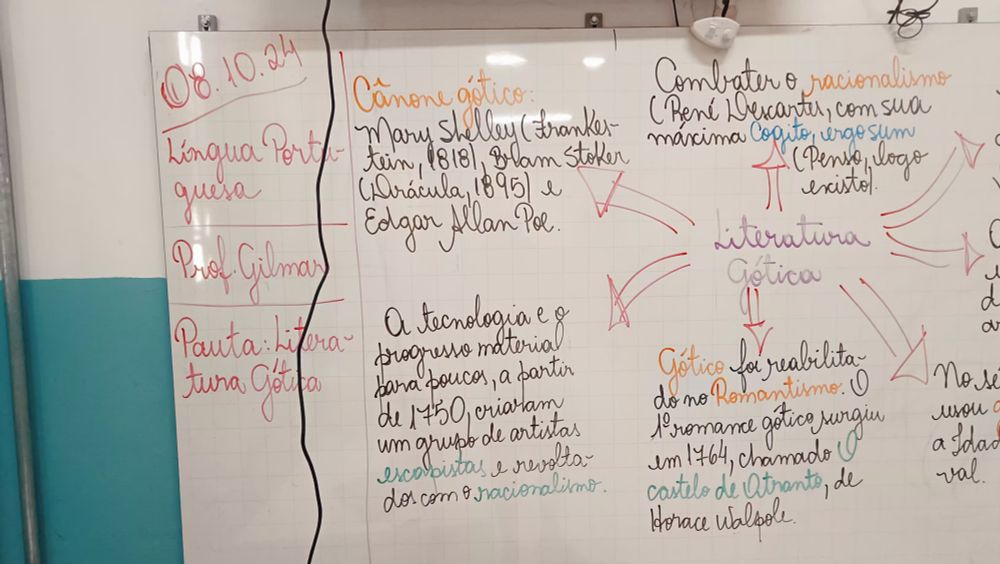 08.10.24
Língua Portu-
guesa
Prof. Gilmar
Pauta: Litera-
tura Gótica
Cânone gótico:
Mary Shelley (Frankes-
tein, 1818), Bram Stoker
(Drácula, 1895) e
Edgar Allan Poe.
A tecnologia e o
progresso material
para poucos, a partir
de 1750, criaram
um grupo de artistas
escapistas e revolta-
dos com o racionalismo.
Combater o racionalismo
(René) Descartes, com sua
máxima Cogito, ergo sum
(Penso, logo
existo).
Literatura
Gótica
Gótico foi reabilita-
do no Romantismo. O
1º romance gótico surgiu
em 1764, chamado O
castelo de Otranto, de
Horace Walpole.
No sé
usou
a Idad
val.